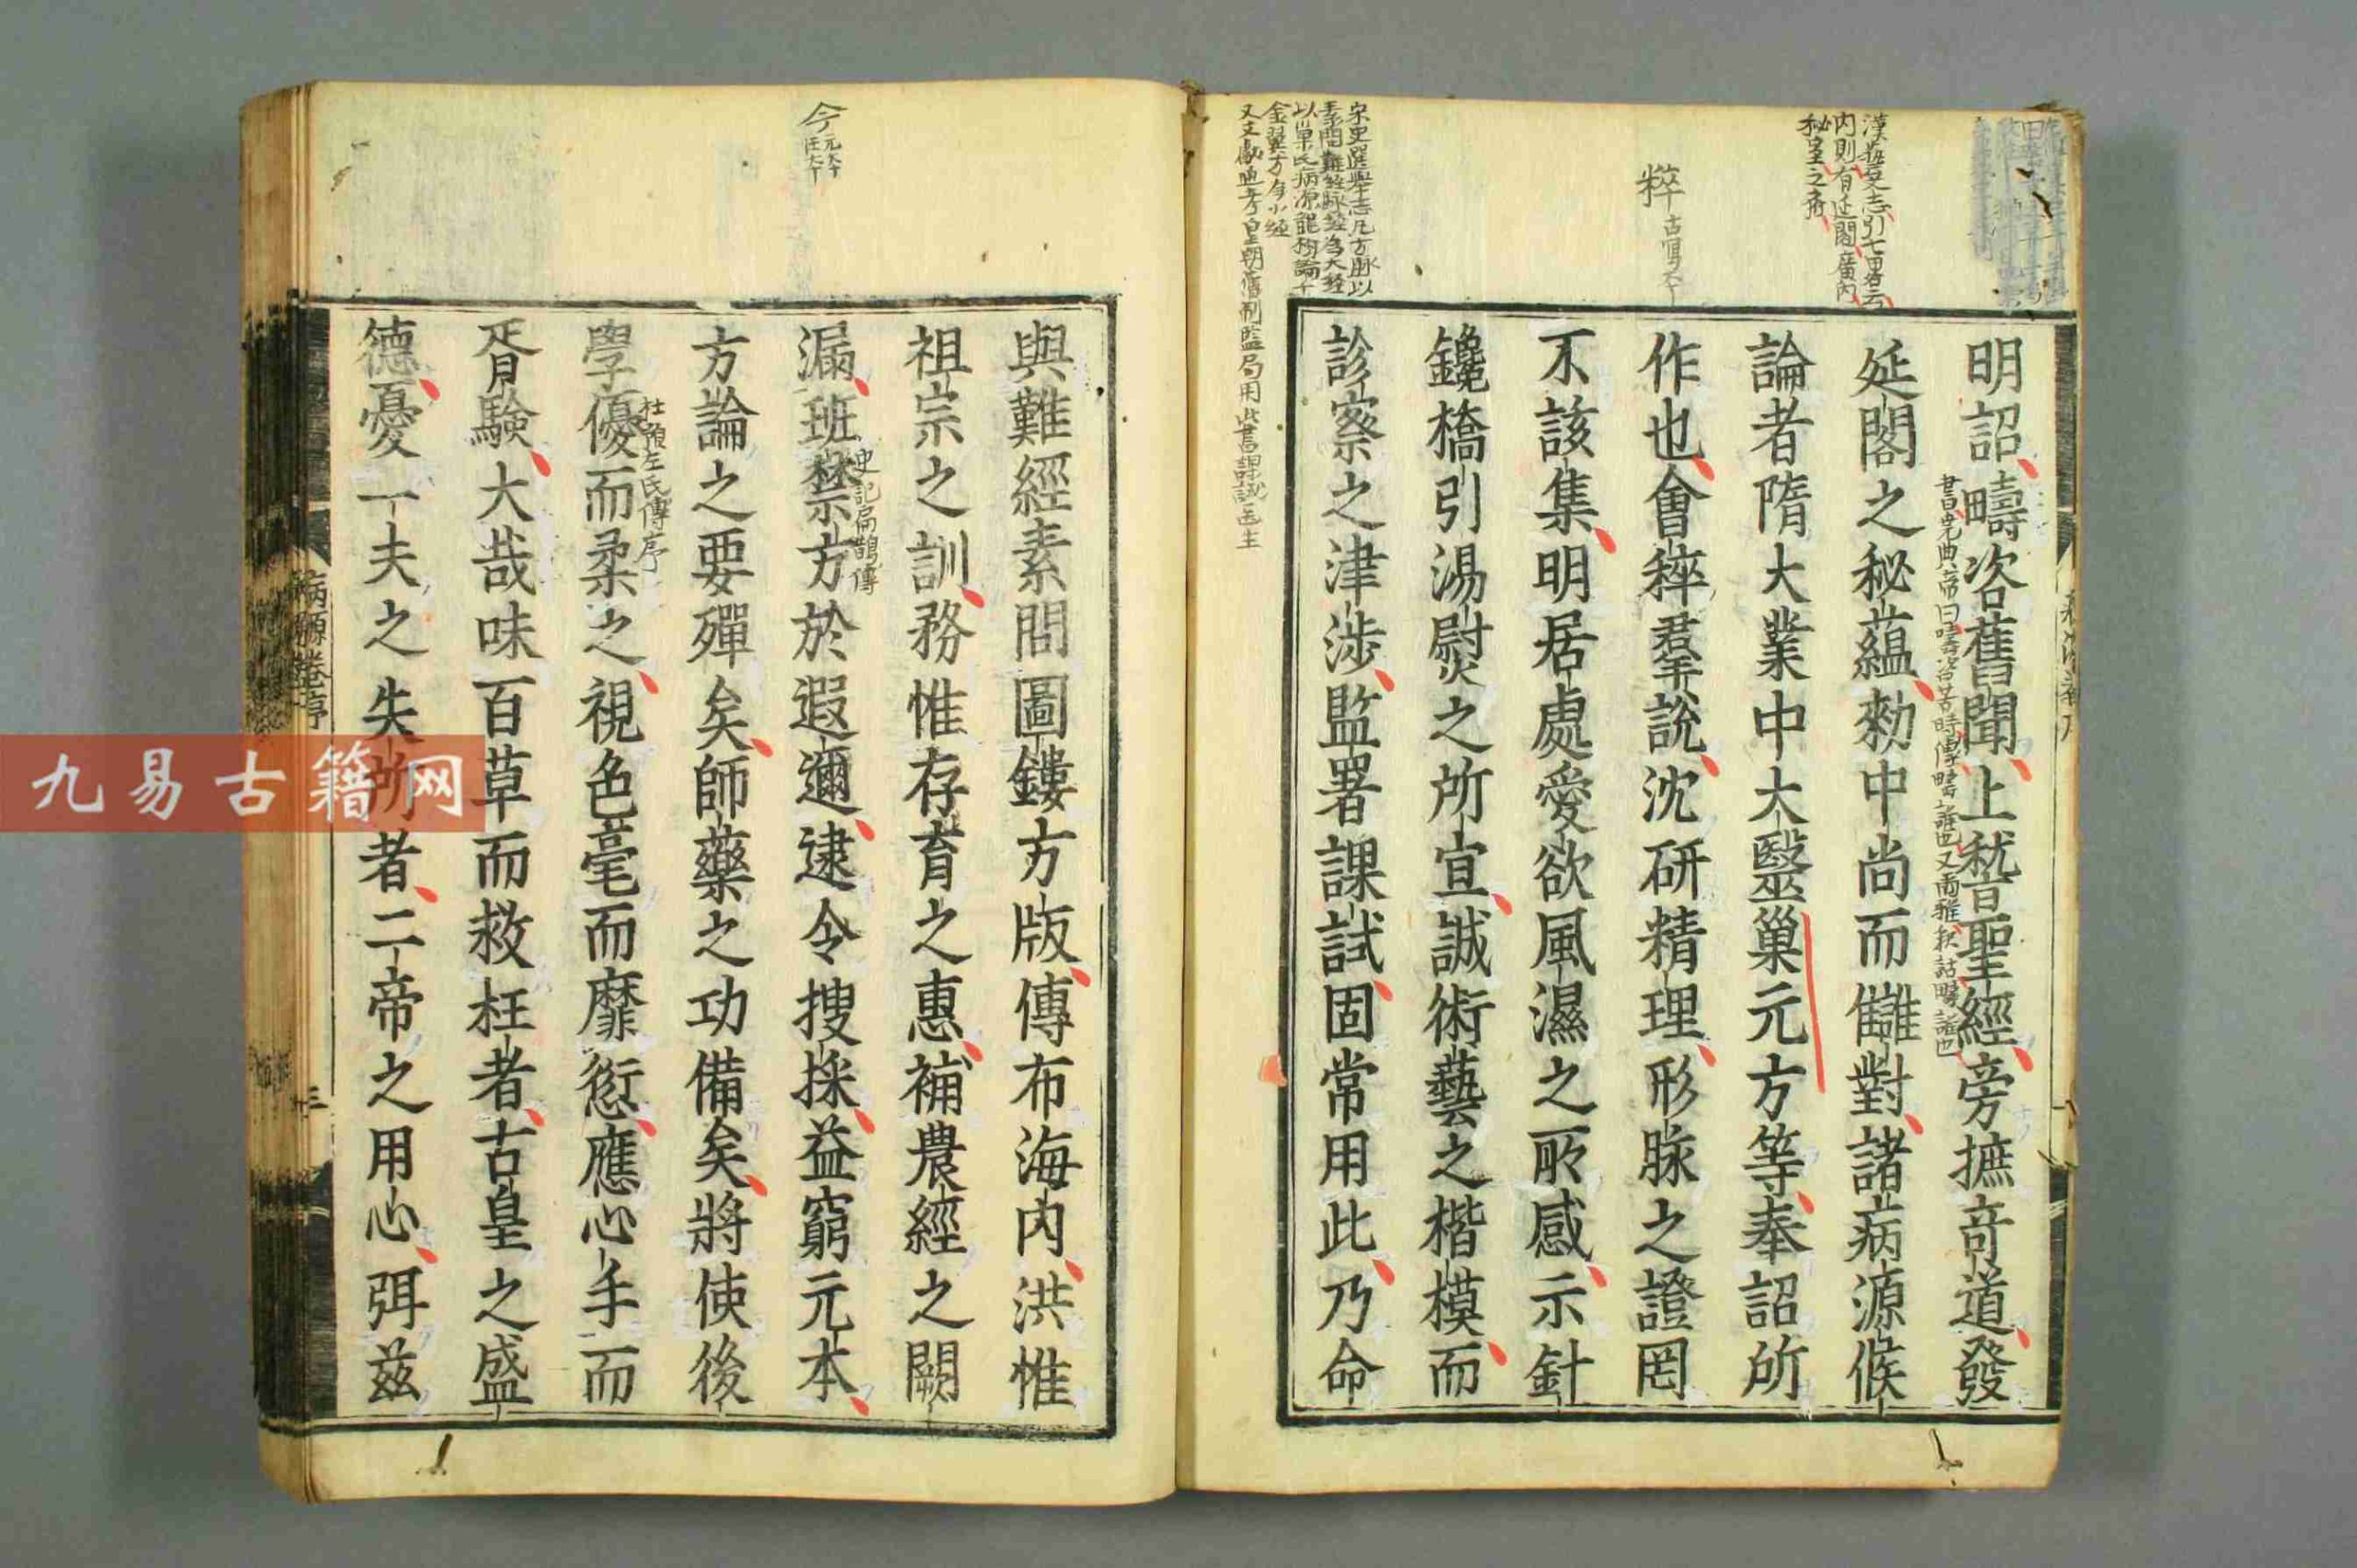 明詔疇咨舊聞上嵇聖經旁摭奇道發
延閣之秘蘊勑中尚而讎對諸病源候
論者隋大業中大醫巢元方等奉詔所
作也會稡羣說沈研精理形脉之證罔
不該集明居處愛欲風濕之所感示針
鑱橋引湯熨之所宜誠術藝之楷模而
診察之津涉監署課試固常用此乃命
與難經素問圖鏤方版傳布海內洪惟
祖宗之訓務惟存育之惠補農經之闕
漏班禁方於遐邇逮今搜採益窮元本
方論之要殫矣師藥之功備矣將使後
學優而柔之視色毫而靡愆應心手而
胥驗大哉味百草而救枉者古皇之盛
德憂一夫之失所者二帝之用心弭茲
漢藝文志引七畧云
內則有延閣廣內
秘室之府
書堯典帝曰疇咨若時傳疇誰也又爾雅釋詁疇誰也
粹 古寫本
宋史選舉志凡方脉以
素問難經脉經爲大經
以巢氏病源龍樹論千
金翼方爲小經
又文獻通考皇朝舊制監局用此書課試医生
史記扁鵲傳
杜預左氏傳序
病源卷序
三
九易古籍网